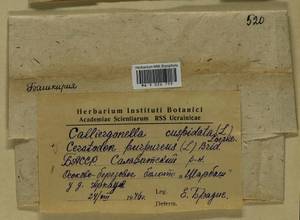 520
Башкирия
Herbarium Instituti Botanici
Academiae Scientiarum RSS Ucrainicae
Calliergonella cuspidata (L.) Loeske
Ceratodon purpureus (L.) Brid.
БАССР Салаватский р-н.
Осоково-березовое болото "Шарбай"
у д.
24/VIII 1946 г. Е. Брадис.
Determ.